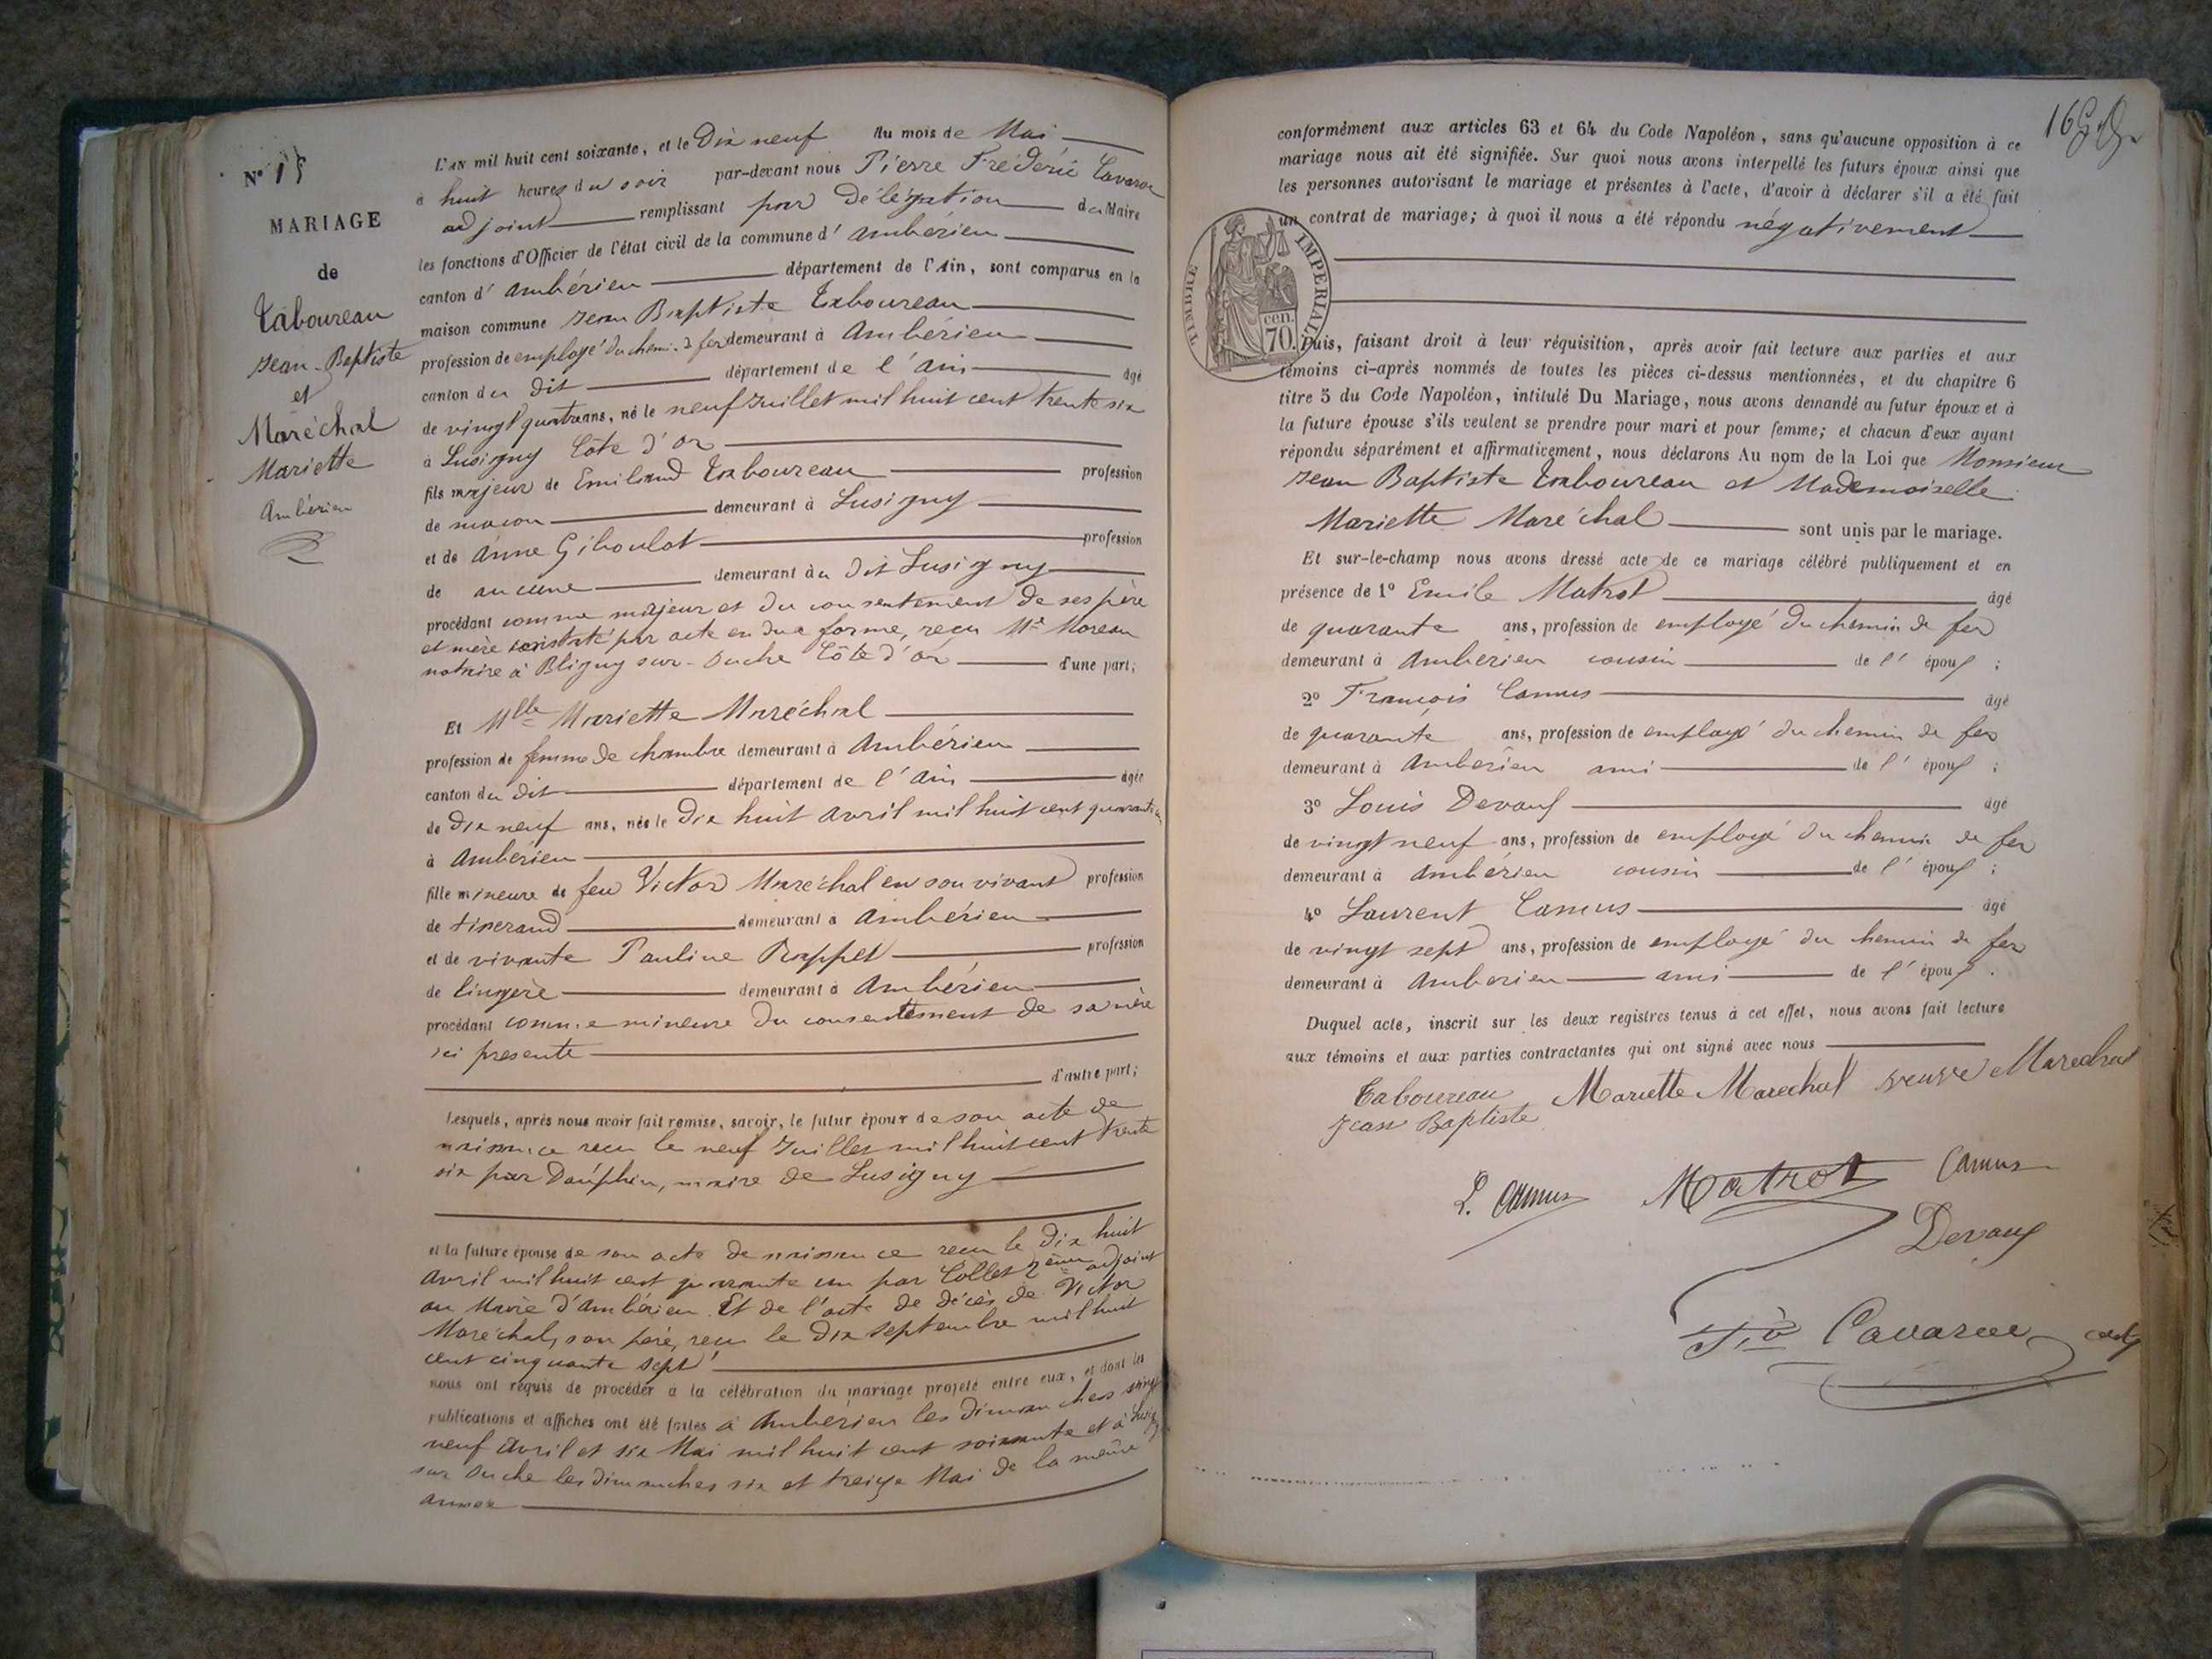 N° 15
MARIAGE
de
Taboureau
Jean-Baptiste
et
Maréchal
Mariette
Ambérieu
L'AN mil huit cent soixante, et le Dix neuf du mois de Mai
à huit heures du soir par-devant nous Pierre Frédéric Cavaroc
adjoint remplissant par Délégation du Maire
les fonctions d'Officier de l'état civil de la commune d' Ambérieu
canton d' Ambérieu département de l'Ain, sont comparus en la
maison commune Jean Baptiste Taboureau
profession de employé du chemin de fer demeurant à Ambérieu
canton du dit département de l'Ain âgé
de vingt quatre ans, né le neuf Juillet mil huit cent trente six
à Lusigny Côte d'or
fils majeur de Emiliand Taboureau profession
de maçon demeurant à Lusigny
et de Anne Giboulot profession
de aucune demeurant à du dit Lusigny
procédant comme majeur et du consentement de ses père
et mère constaté par acte en due forme, reçu Me Moreau
notaire à Bligny sur-Ouche Côte d'or d'une part;
Et Mlle Mariette Maréchal
profession de femme de chambre demeurant à Ambérieu
canton du dit département de l'Ain âgée
de dix neuf ans, née le dix huit avril mil huit cent quarante un
à Ambérieu
fille mineure de feu Victor Maréchal en son vivant profession
de tiserand demeurant à Ambérieu
et de vivante Pauline Rappet profession
de lingère demeurant à Ambérieu
procédant comme mineure du consentement de sa mère
ici presente
d'autre part;
Lesquels, après nous avoir fait remise, savoir, le futur époux de son acte de
naissance reçu le neuf Juillet mil huit cent trente
six par Dauphin, maire de Lusigny
et la future épouse de son acte de naissance reçu le dix huit
avril mil huit cent quarante un par Collet 2ème adjoint
au Maire d'Ambérieu. Et de l'acte de décès de Victor
Maréchal, son père, reçu le dix septembre mil huit
cent cinquante sept
nous ont requis de procéder à la célébration du mariage projeté entre eux, et dont les
publications et affiches ont été faites à Ambérieu les dimanches vingt
neuf Avril et six Mai mil huit cent soixante et à Lusigny
sur Ouche les dimanches six et treize Mai de la même
année
conformément aux articles 63 et 64 du Code Napoléon, sans qu'aucune opposition à ce
mariage nous ait été signifiée. Sur quoi nous avons interpellé les futurs époux ainsi que
les personnes autorisant le mariage et présentes à l'acte, d'avoir à déclarer s'il a été fait
un contrat de mariage; à quoi il nous a été répondu négativement
TIMBRE IMPERIAL
cen.
70.
Puis, faisant droit à leur réquisition, après avoir fait lecture aux parties et aux
témoins ci-après nommés de toutes les pièces ci-dessus mentionnées, et du chapitre 6
titre 5 du Code Napoléon, intitulé Du Mariage, nous avons demandé au futur époux et à
la future épouse s'ils veulent se prendre pour mari et pour femme; et chacun d'eux ayant
répondu séparément et affirmativement, nous déclarons Au nom de la Loi que Monsieur
Jean Baptiste Taboureau et Mademoiselle
Mariette Maréchal sont unis par le mariage.
Et sur-le-champ nous avons dressé acte de ce mariage célébré publiquement et en
présence de 1° Emile Matrot âgé
de quarante ans, profession de employé du chemin de fer
demeurant à Ambérieu cousin de l'époux ;
2° François Camus âgé
de quarante ans, profession de employé du chemin de fer
demeurant à Ambérieu ami de l'époux ;
3° Louis Devaux âgé
de vingt neuf ans, profession de employé du chemin de fer
demeurant à Ambérieu cousin de l'époux ;
4° Laurent Camus âgé
de vingt sept ans, profession de employé du chemin de fer
demeurant à Ambérieu ami de l'époux.
Duquel acte, inscrit sur les deux registres tenus à cet effet, nous avons fait lecture
aux témoins et aux parties contractantes qui ont signé avec nous
Taboureau Mariette Marechal veuve Marechal
Jean Baptiste
L. Camus Matrot Camus
Devaux
Cavaroc